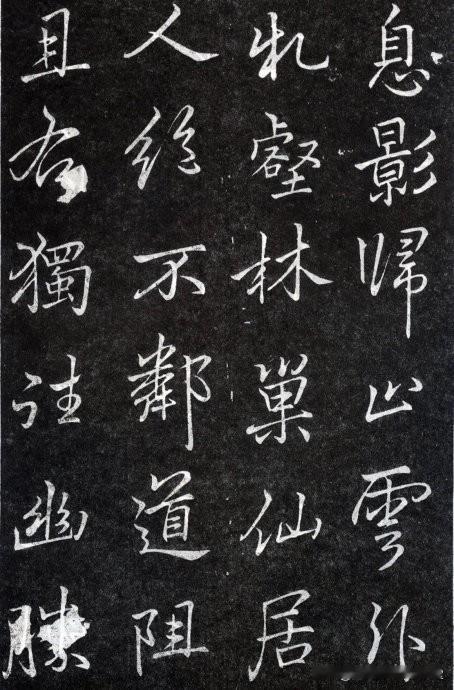 息影歸山雲外
壑林巢仙居
人絶不鄰道阻
且獨往幽勝